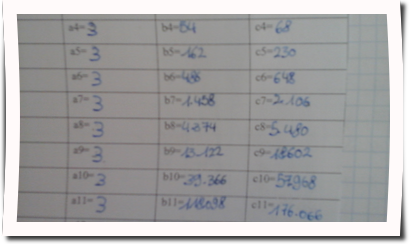 a4= 3 b4= 54 c4= 68
a5= 3 b5= 162 c5= 230
a6= 3 b6= 486 c6= 648
a7= 3 b7= 1.458 c7= 2.106
a8= 3 b8= 4.374 c8= 5.480
a9= 3 b9= 13.122 c9= 18602
a10= 3 b10= 39.366 c10= 57968
a11= 3 b11= 118098 c11= 176.066